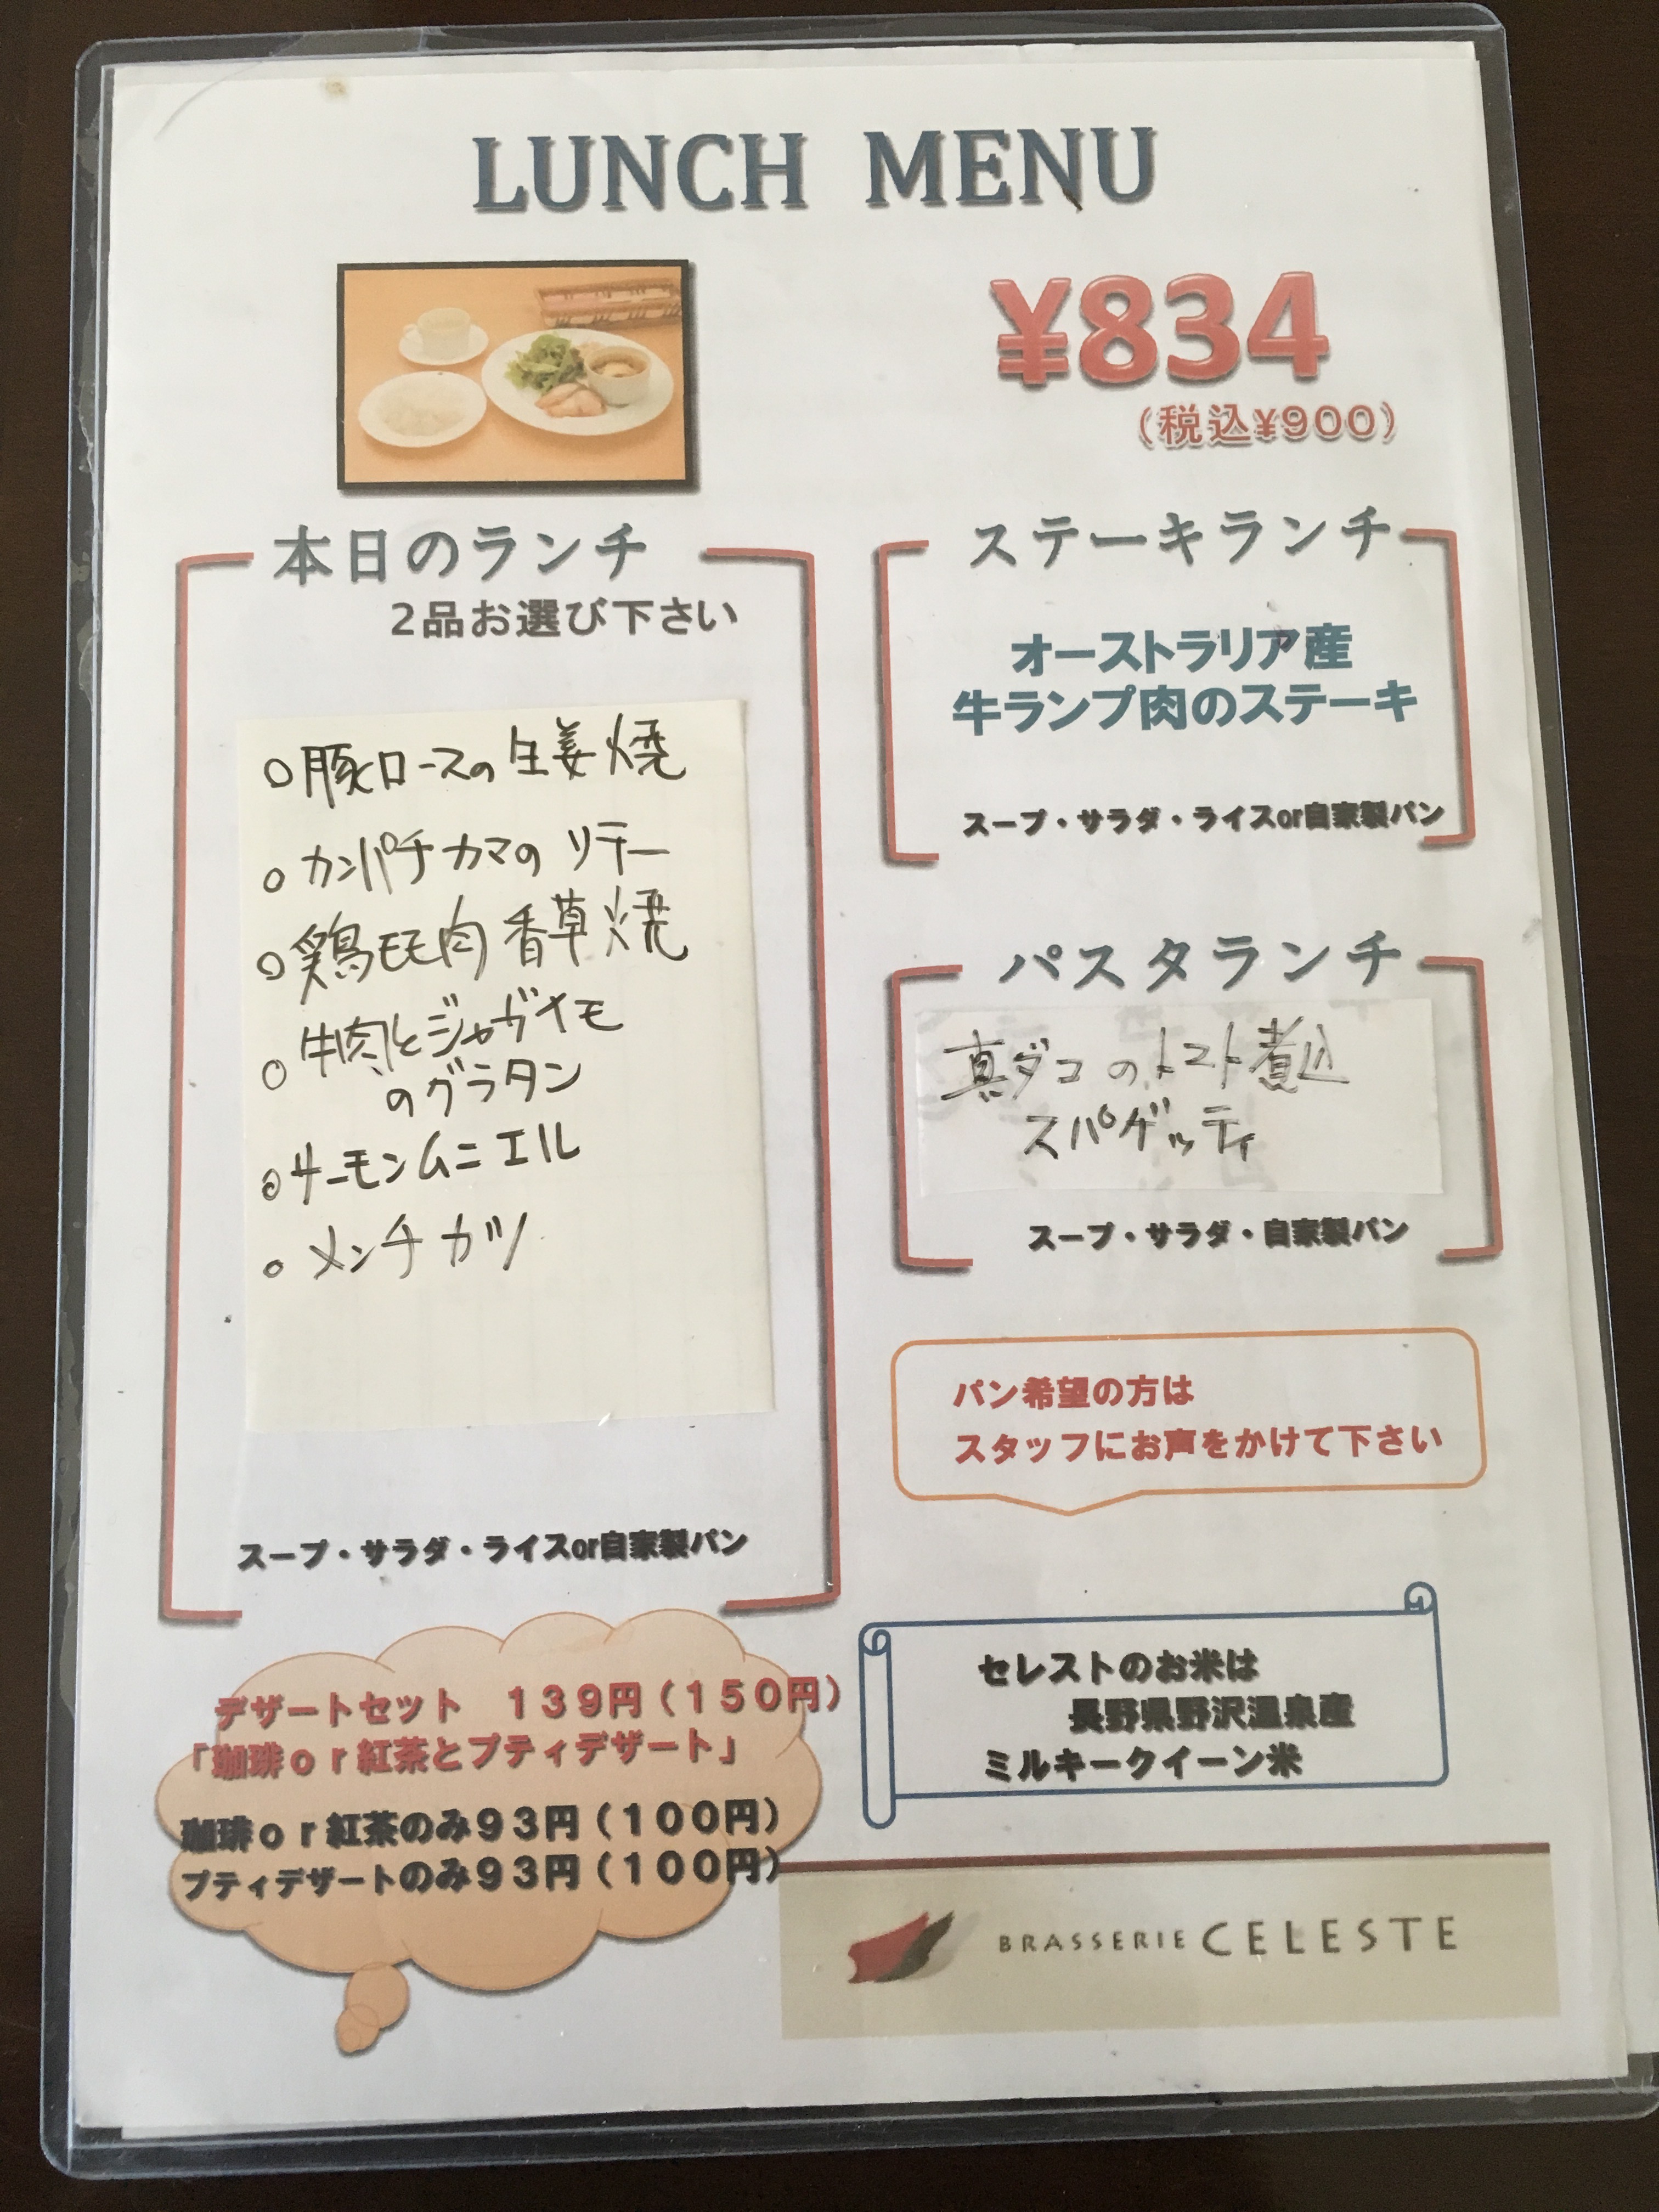 LUNCH MENU
¥834
(税込¥900)
本日のランチ
2品お選び下さい
○豚ロースの生姜焼
○カンパチカマのソテー
○鶏モモ肉香草焼
○牛肉とジャガイモ
のグラタン
○サーモンムニエル
○メンチカツ
スープ・サラダ・ライスor自家製パン
ステーキランチ
オーストラリア産
牛ランプ肉のステーキ
スープ・サラダ・ライスor自家製パン
パスタランチ
真ダコのトマト煮込
スパゲッティ
スープ・サラダ・自家製パン
パン希望の方は
スタッフにお声をかけて下さい
デザートセット 139円(150円)
「珈琲or紅茶とプティデザート」
珈琲or紅茶のみ93円(100円)
プティデザートのみ93円(100円)
セレストのお米は
長野県野沢温泉産
ミルキークイーン米
BRASSERIE CELESTE